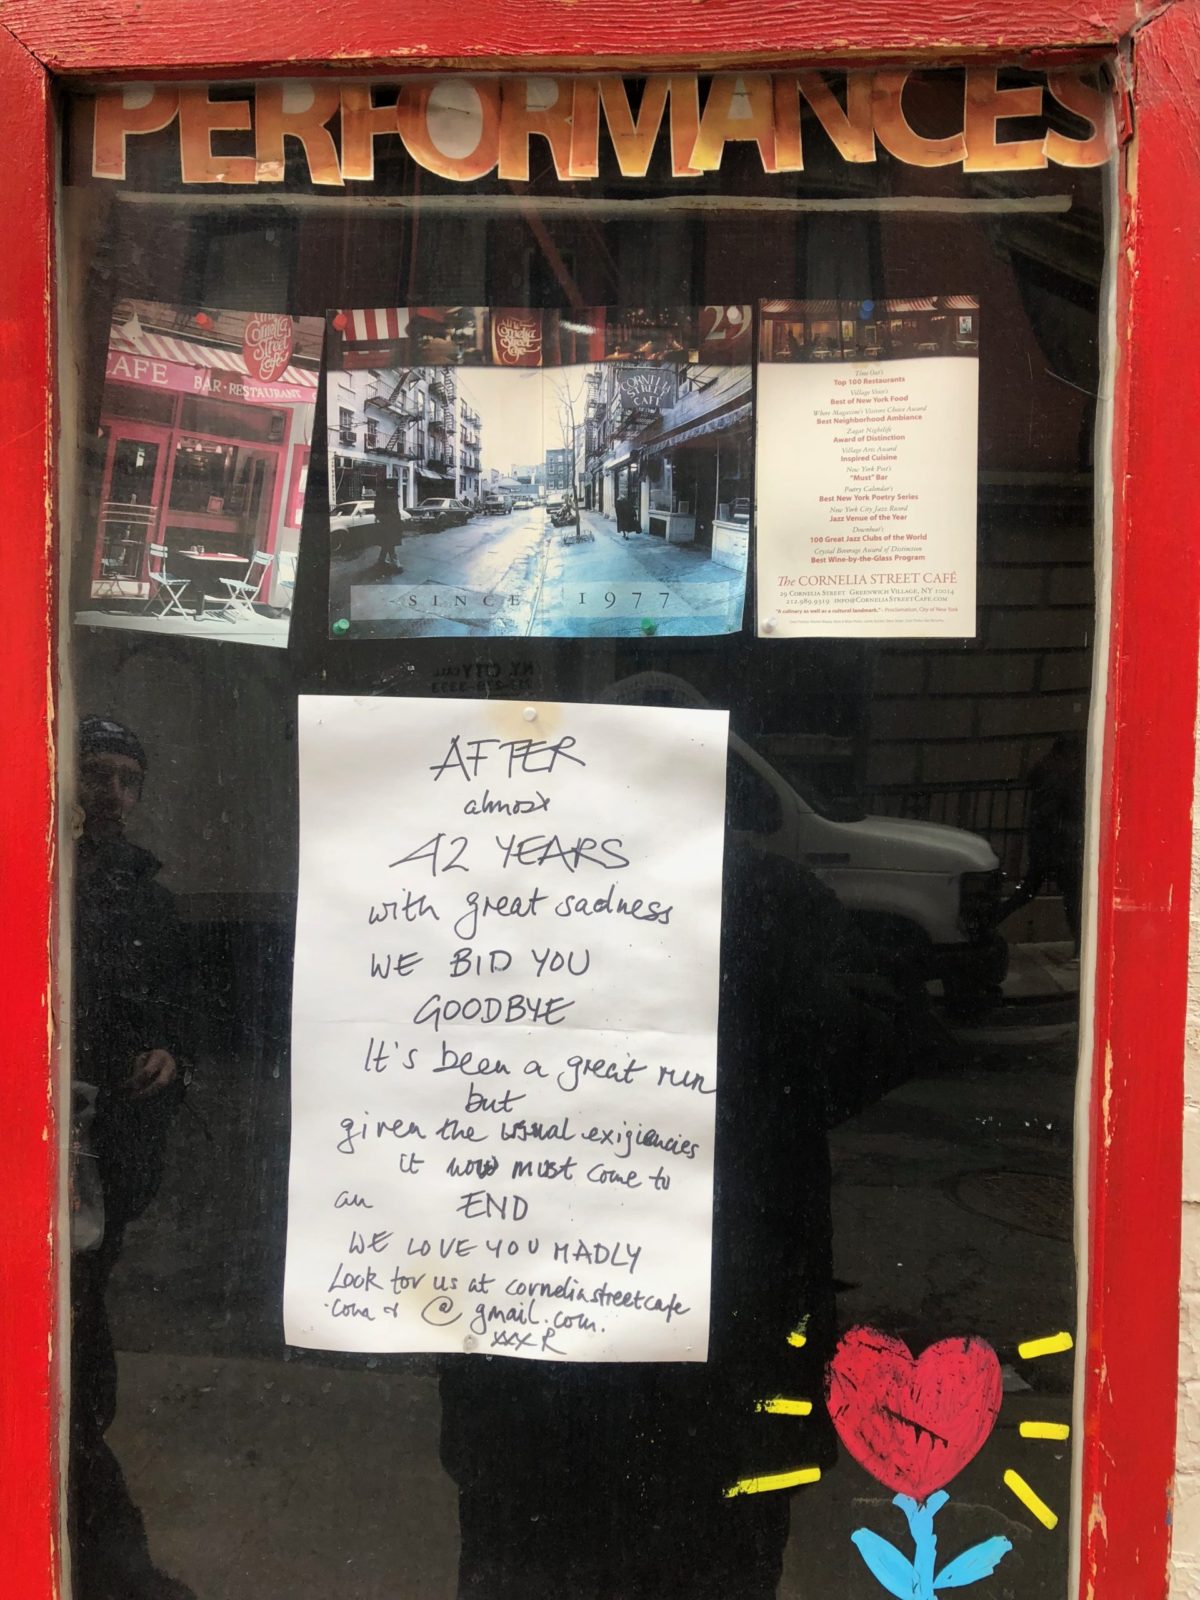 PERFORMANCES
The
Cornelia
Street
Café
CAFE BAR·RESTAURANT
The
Cornelia
Street
Café
29
CORNELIA
STREET
CAFÉ
SINCE 1977
Time Out's
Top 100 Restaurants
Village Voice's
Best of New York Food
Where Magazine's Visitors Choice Award
Best Neighborhood Ambiance
Zagat Nightlife
Award of Distinction
Village Arts Award
Inspired Cuisine
New York Post's
"Must" Bar
Poetry Calendar's
Best New York Poetry Series
New York City Jazz Record
Jazz Venue of the Year
Downbeat's
100 Great Jazz Clubs of the World
Crystal Beverage Award of Distinction
Best Wine-by-the-Glass Program
The CORNELIA STREET CAFÉ
29 CORNELIA STREET GREENWICH VILLAGE, NY 10014
212.989.9319 INFO@CORNELIASTREETCAFE.COM
"A culinary as well as a cultural landmark." - Proclamation, City of New York
AFTER
almost
42 YEARS
with great sadness
WE BID YOU
GOODBYE
It's been a great run
but
given the usual exigiencies
it now must come to
an END
WE LOVE YOU MADLY
Look for us at corneliastreetcafe
.com & @ gmail.com.
xxx R